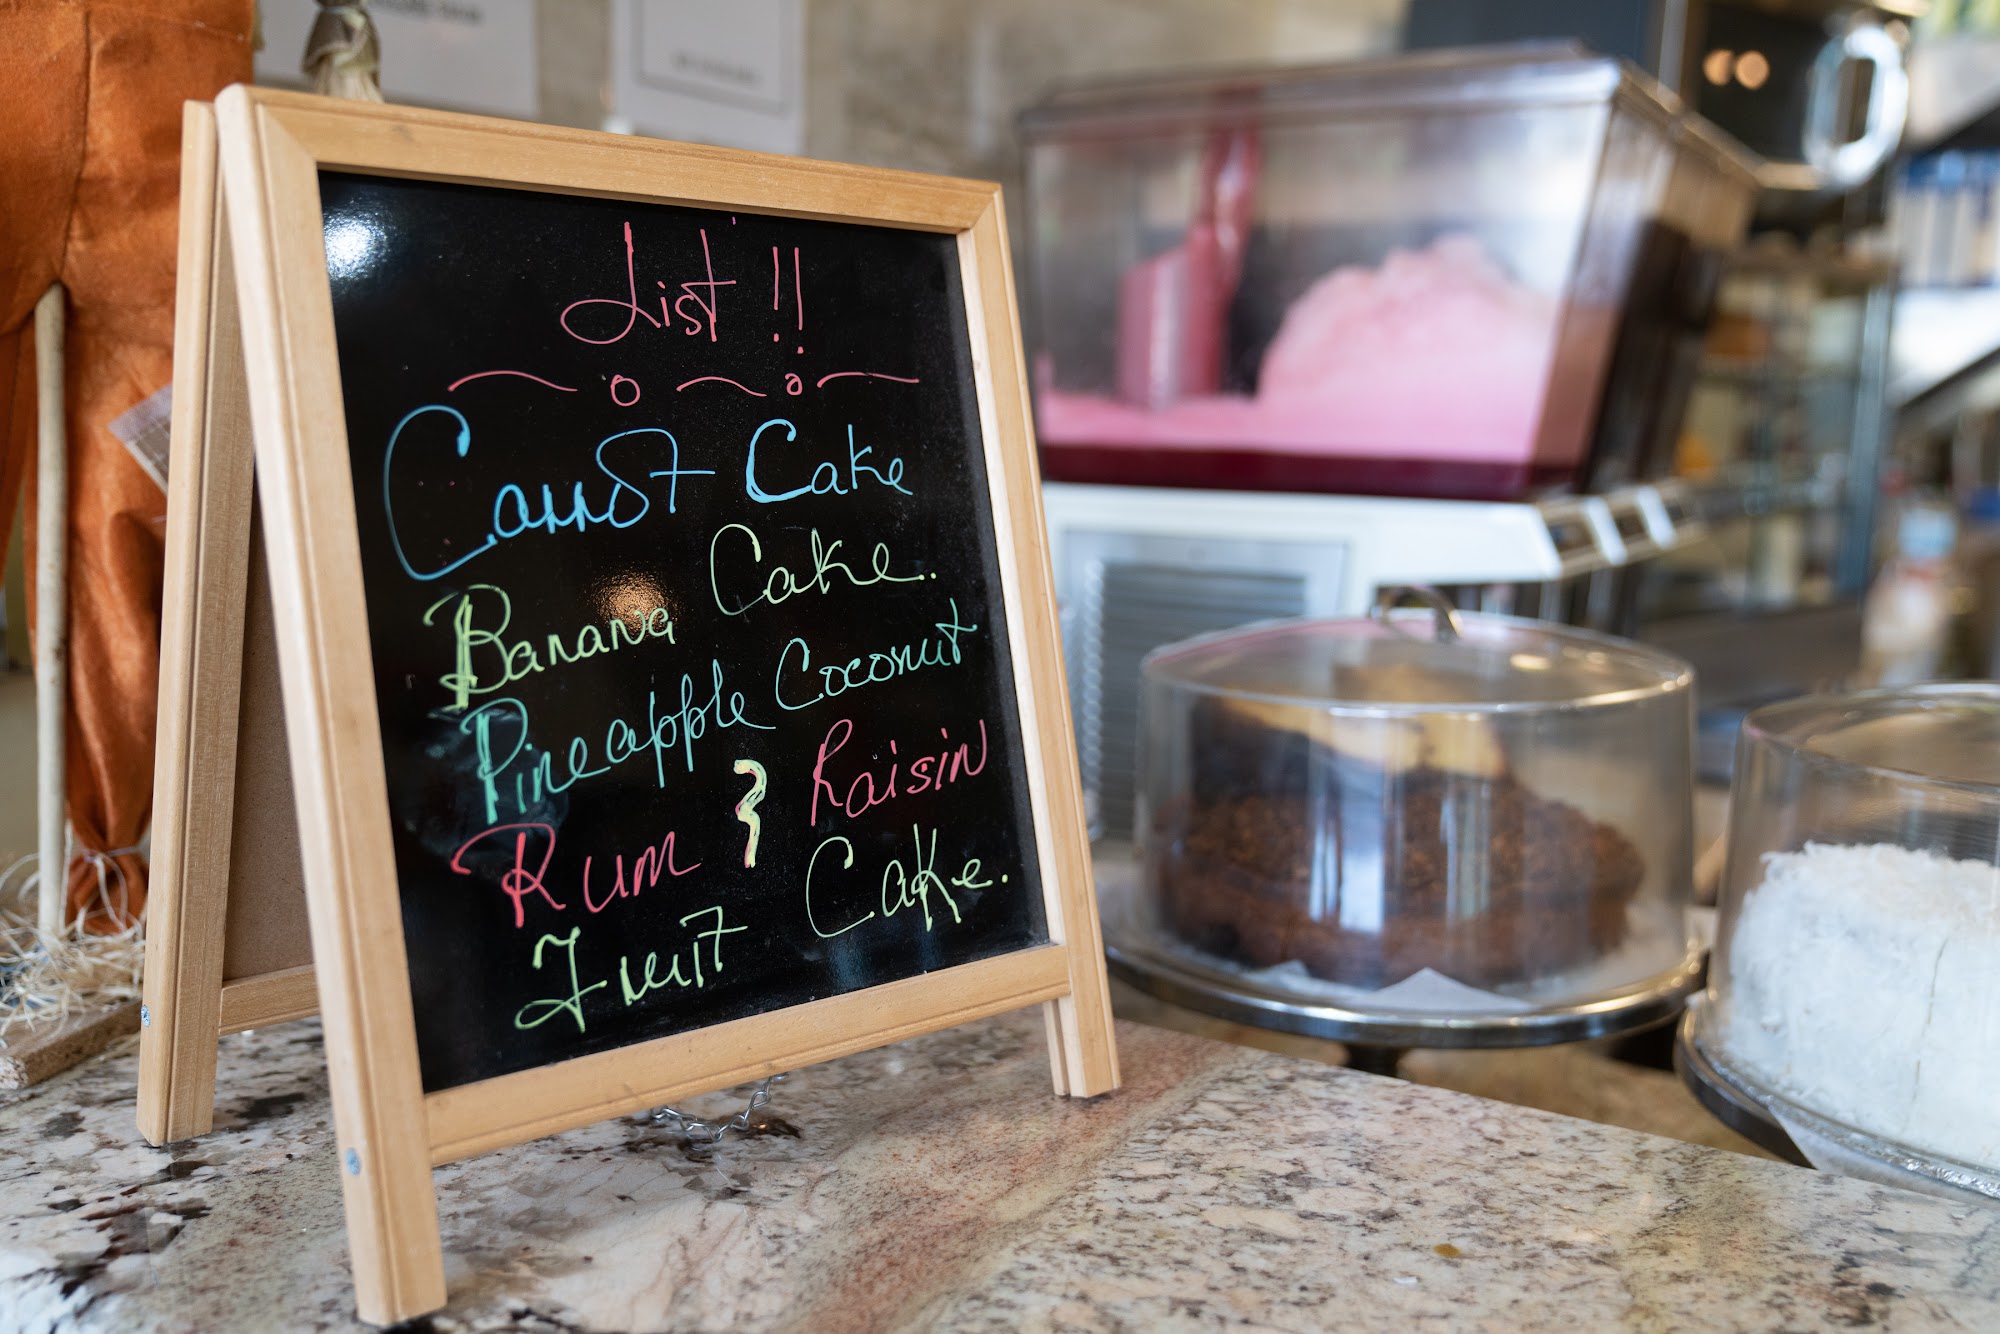 List !!
Carrot Cake
Banana Cake.
Pineapple Coconut
Rum & Raisin
Fruit Cake.